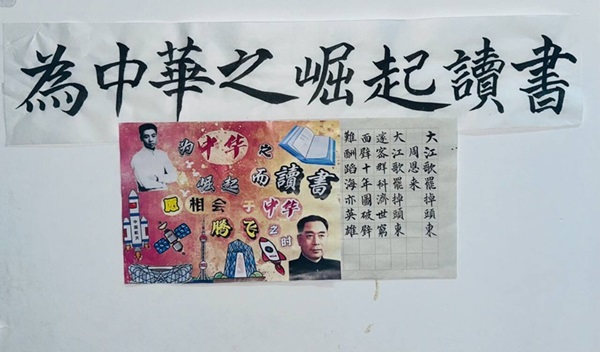 為中華之崛起讀書
为中华之
崛起而讀書
愿相会于中华
腾飞之时
中国航天
大江歌罷掉頭東
周恩来
大江歌罷掉頭東
邃密群科濟世窮
面壁十年圖破壁
難酬蹈海亦英雄